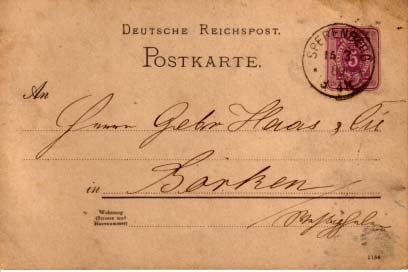 DEUTSCHE REICHSPOST.
POSTKARTE.
SPERENBERG
5
An
Herrn Gebr Haas & Cie
in Borken
Wohnung
(Strasse und
Hausnummer)
Westphalen
1184